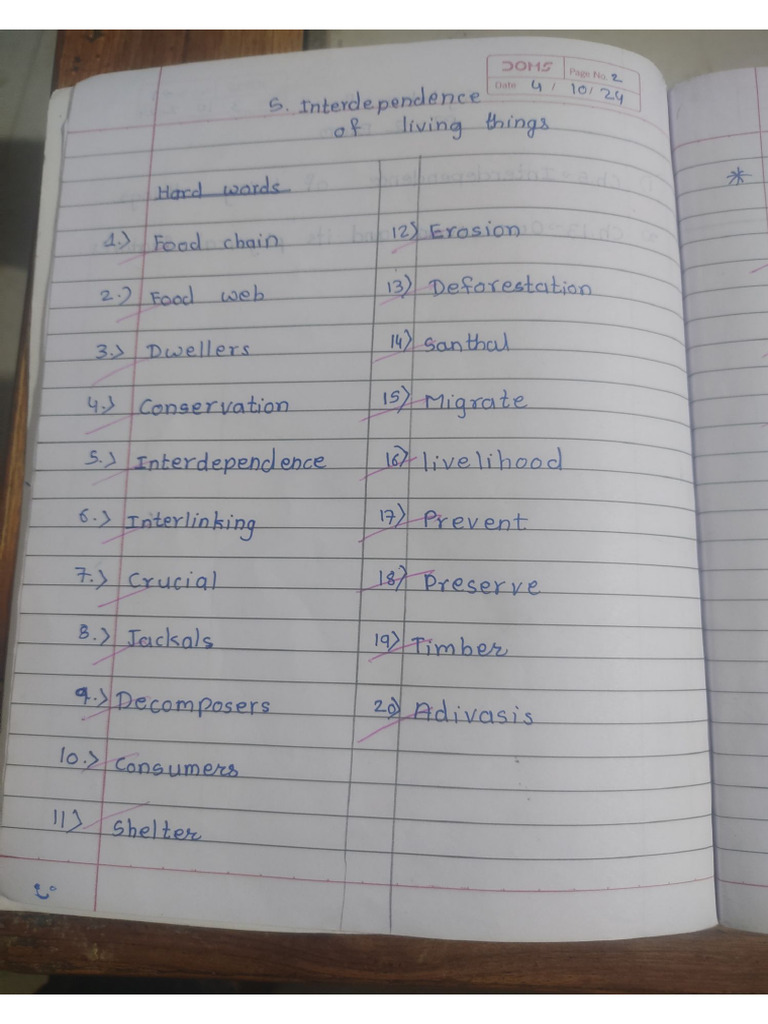 DOMS
Page No. 2
Date 4 / 10 / 24
5. Interdependence
of living things
Hard words
1.) Food chain
2.) Food web
3.) Dwellers
4.) Conservation
5.) Interdependence
6.) Interlinking
7.) Crucial
8.) Jackals
9.) Decomposers
10.) Consumers
11) Shelter
12) Erosion
13) Deforestation
14) Santhal
15) Migrate
16) livelihood
17) Prevent
18) Preserve
19) Timber
20) Adivasis